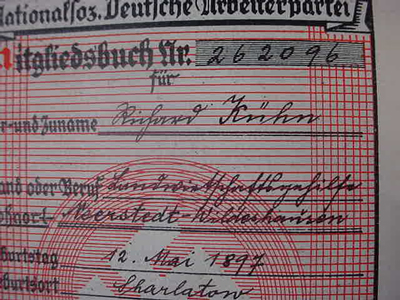 Nationalsoz. Deutsche Arbeiterpartei
Mitgliedsbuch Nr. 262096
für
r- und Zuname Richard Kühn
and oder Beruf Landwirtschaftsgehilfe
ohnort Neerstedt-Wildeshausen
burtstag 12. Mai 1897
burtsort Skarlatow